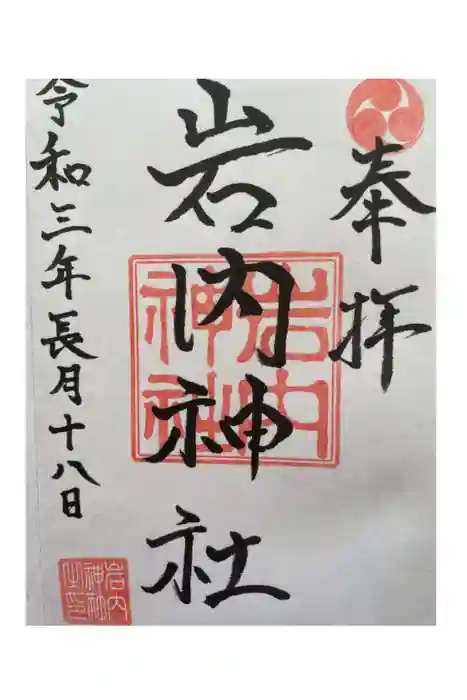 奉拝
岩内神社
岩内
神社
令和三年長月十八日
岩内
神社
之印